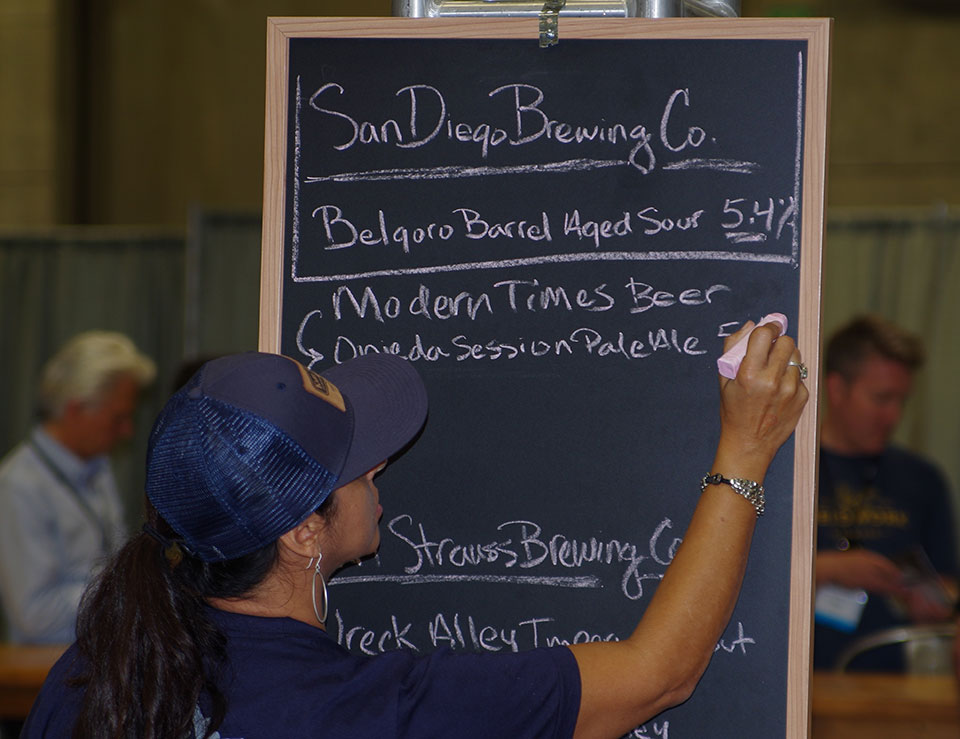 San Diego Brewing Co.
Belgoro Barrel Aged Sour 5.4%
Modern Times Beer
Oneida Session Pale Ale 5
Strauss Brewing Co
Alley